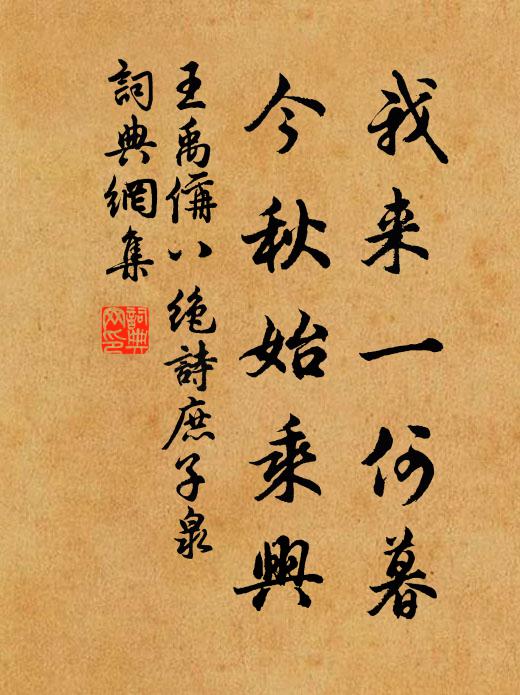 我来一何暮
今秋始乘興
王禹偁八絶詩庶子泉
詞典網集
詞典網印